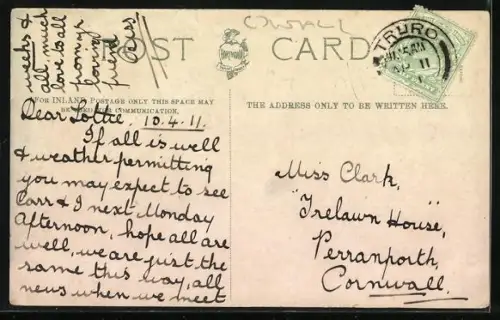 Cornwall
POST CARD
TRURO
AP 11
weeks &
all, much
love to all
from yr
loving
friend
FOR INLAND POSTAGE ONLY THIS SPACE MAY
BE USED FOR COMMUNICATION.
THE ADDRESS ONLY TO BE WRITTEN HERE.
Dear Lottie 10.4.11.
If all is well
& weather permitting
you may expect to see
Carr & I next Monday
Afternoon, hope all are
well, we are just the
same this way, all
news when we meet
Miss Clark,
"Trelawn House",
Perranporth,
Cornwall.